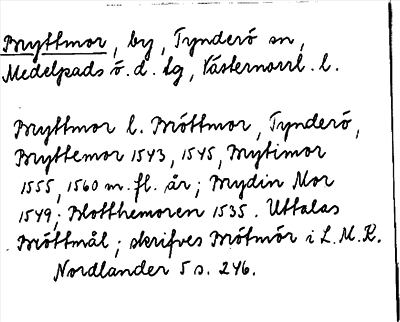 Bryttmor, by, Tynderö sn,
Medelpads ö. d. tg, Västernorrl. l.
Bryttmor l. Bröttmor, Tynderö,
Bryttemor 1543, 1545, Brytimor
1555, 1560 m. fl. år; Brydin Mor
1549; Blotthemoren 1535. Uttalas
Bröttmål; skrifves Brötmör i L.M.K.
Nordlander 5 s. 246.